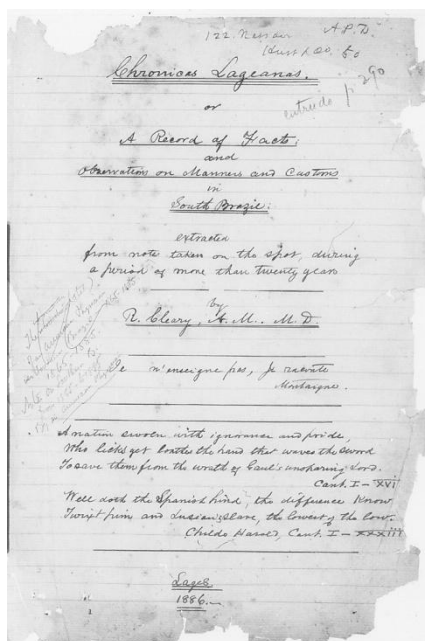 122 Nassau
A.P.D.
50
entrudo p 290
Chronicas Lageanas.
or
A Record of Facts;
and
Observations on Manners and Customs
in
South Brazil:
extracted
from note taken on the spot, during
a period of more than twenty years
by
R. Cleary, A.M., M.D.
Je n'enseigne pas, Je raconte
Montaigne.
A nation swoln with ignorance and pride,
Who licks yet loathes the hand that waves the sword
To save them from the wrath of Gaul's unsparing Lord.
Cant. I - XVI
Well doth the Spanish hind, the difference Know
Twixt him and Lusian slave, the lowest of the low.
Childe Harold, Cant. I - XXXIII
Lages
1886.